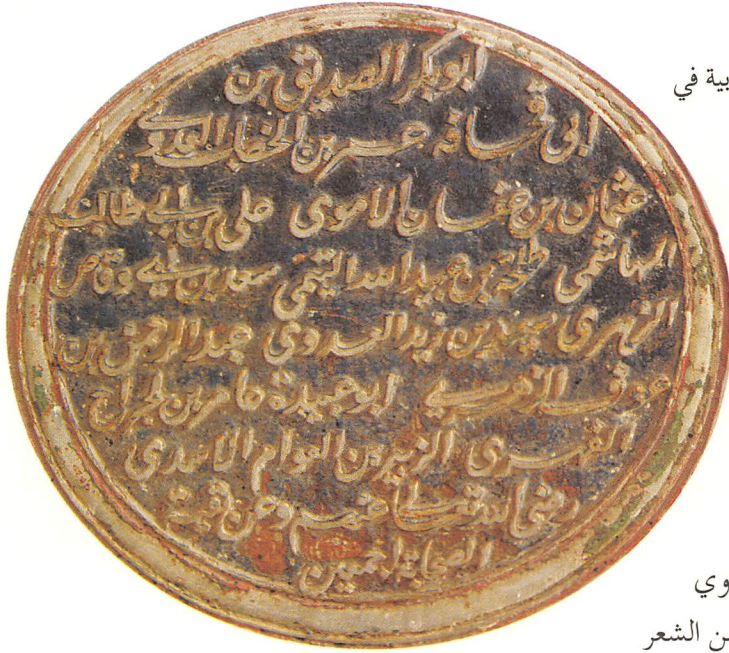 ابوبكر الصديق بن
ابى قحافه عمر بن الخطاب العدوى
عثمان بن عفان الاموى على بن ابى طالب
الهاشمى طلحة بن عبيدالله التيمى سعد بن ابى وقاص
الزهرى سعيد بن زيد العدوى عبدالرحمن بن
عوف الزهرى ابوعبيدة عامر بن الجراح
الفهرى الزبير بن العوام الاسدى
رضى الله تعالى عنهم وعن بقية
الصحابة اجمعين
بية في
وي
ن الشعر